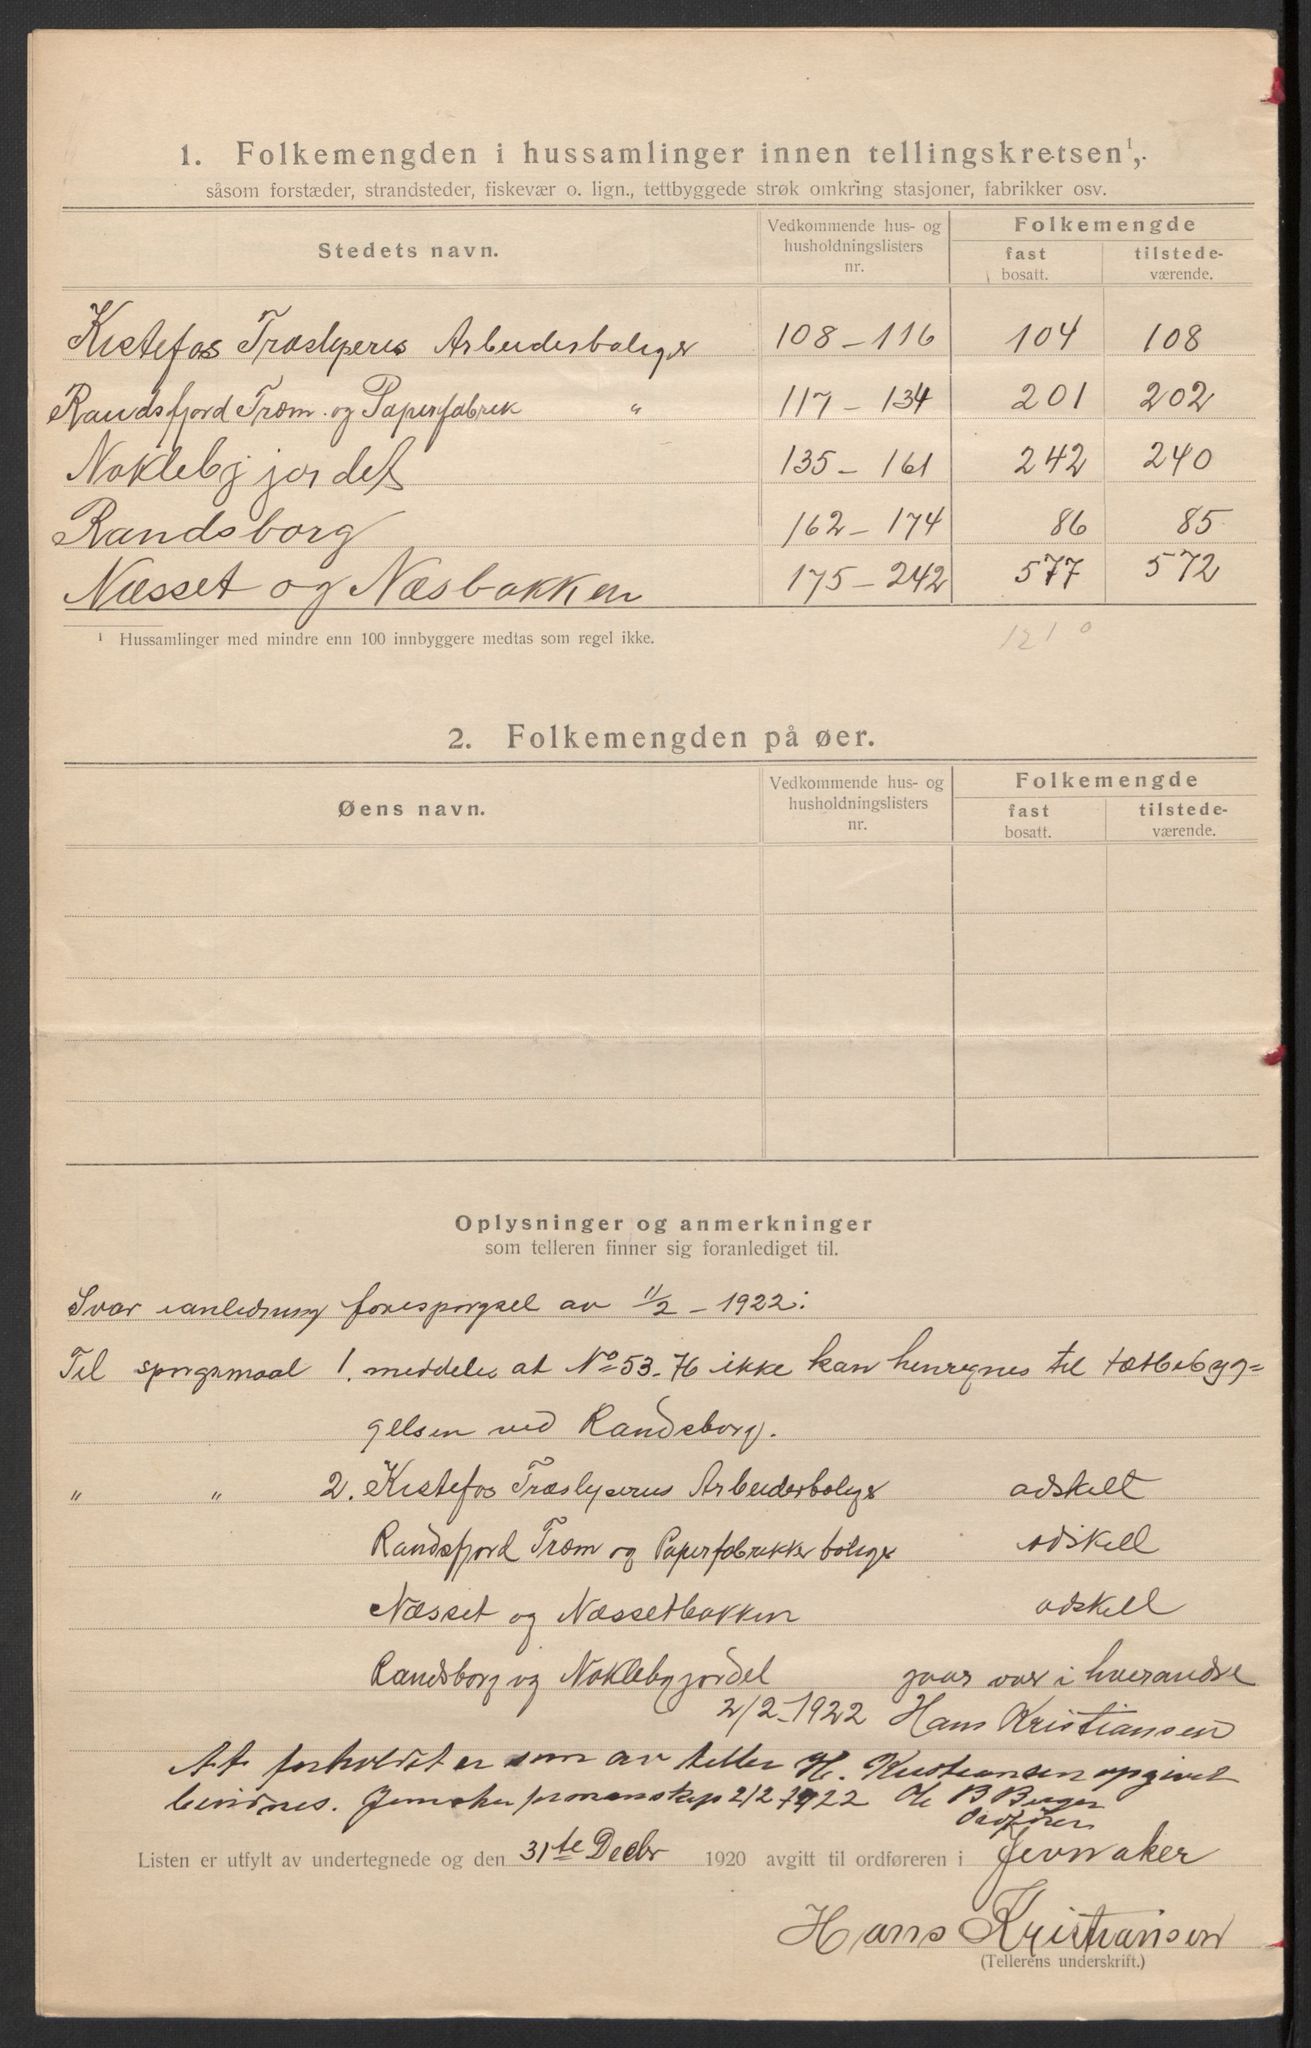 1. Folkemengden i hussamlinger innen tellingskretsen¹,
såsom forstæder, strandsteder, fiskevær o. lign., tettbyggede strøk omkring stasjoner, fabrikker osv.
Stedets navn. Vedkommende hus- og husholdningslisters nr. Folkemengde
fast bosatt. tilstede-værende.
Kistefos Træsliperis Arbeiderboliger 108 – 116 104 108
Randsfjord Træm. og Papirfabrik " 117 – 134 201 202
Nøklebyjordet 135 – 161 242 240
Randsborg 162 – 174 86 85
Næsset og Næsbakken 175 – 242 577 572
¹ Hussamlinger med mindre enn 100 innbyggere medtas som regel ikke.
1210
2. Folkemengden på øer.
Øens navn. Vedkommende hus- og husholdningslisters nr. Folkemengde
fast bosatt. tilstede-værende.
Oplysninger og anmerkninger
som telleren finner sig foranlediget til.
Svar i anledning forespørgsel av 11/2 – 1922:
Til spørgsmaal 1. meddeles at No 53-76 ikke kan henregnes til tætbebyg=
gelsen ved Randsborg.
" " 2. Kistefos Træsliperies Arbeiderboliger adskilt
Randsfjord Træm og Papirfabrikker boliger adskilt
Næsset og Næssetbakken adskilt
Randsborg og Nøklebyjordet gaar over i hverandre
2/2-1922 Hans Kristiansen
At forholdet er som av teller H. Kristiansen opgivet
bevidnes. Jevnaker formannskap 2/2 1922
Ordfører
Listen er utfylt av undertegnede og den 31te Decbr 1920 avgitt til ordføreren i Jevnaker
Hans Kristiansen
(Tellerens underskrift.)